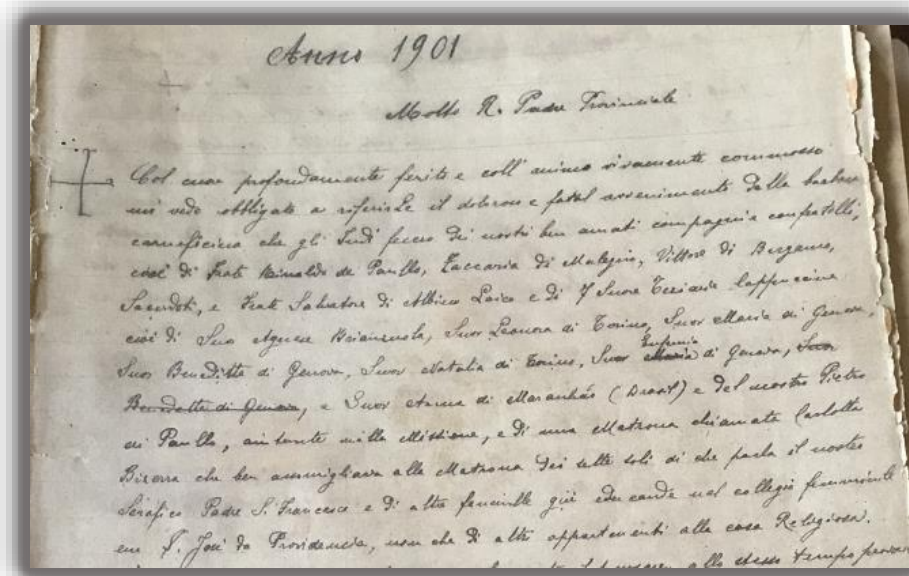 Anno 1901
Molto R. Padre Provinciale
Col cuor profondamente ferito e coll' animo vivamente commosso
mi vedo obbligato a riferirLe il doloroso e fatal avvenimento della barbara
carneficina che gli Indi fecero dei nostri ben amati compagni e confratelli,
cioè di Frati Rinaldo de Paullo, Zaccaria di Malegno, Vittore di Bergamo,
Sacerdoti, e Frate Salvatore di Albino Laico e di 7 Suore Terziarie Cappuccine
cioè di Suor Agnese Brianzuola, Suor Leonora di Torino, Suor Maria di Genova,
Suor Benedetta di Genova, Suor Natalia di Torino, Suor Eufemia di Genova, Suor
Benedetta di Genova, e Suor Anna di Maranhão (Brasil) e del nostro Pietro
di Paullo, aiutante nella Missione, e di una Matrona chiamata Carlotta
Bizerra che ben assomigliava alla Matrona dei sette soli di che parla il nostro
Serafico Padre S. Francesco e di altre fanciulle già educande nel collegio femminile
em S. José da Providencia, non che di altri appartenenti alla casa Religiosa.
allo stesso tempo